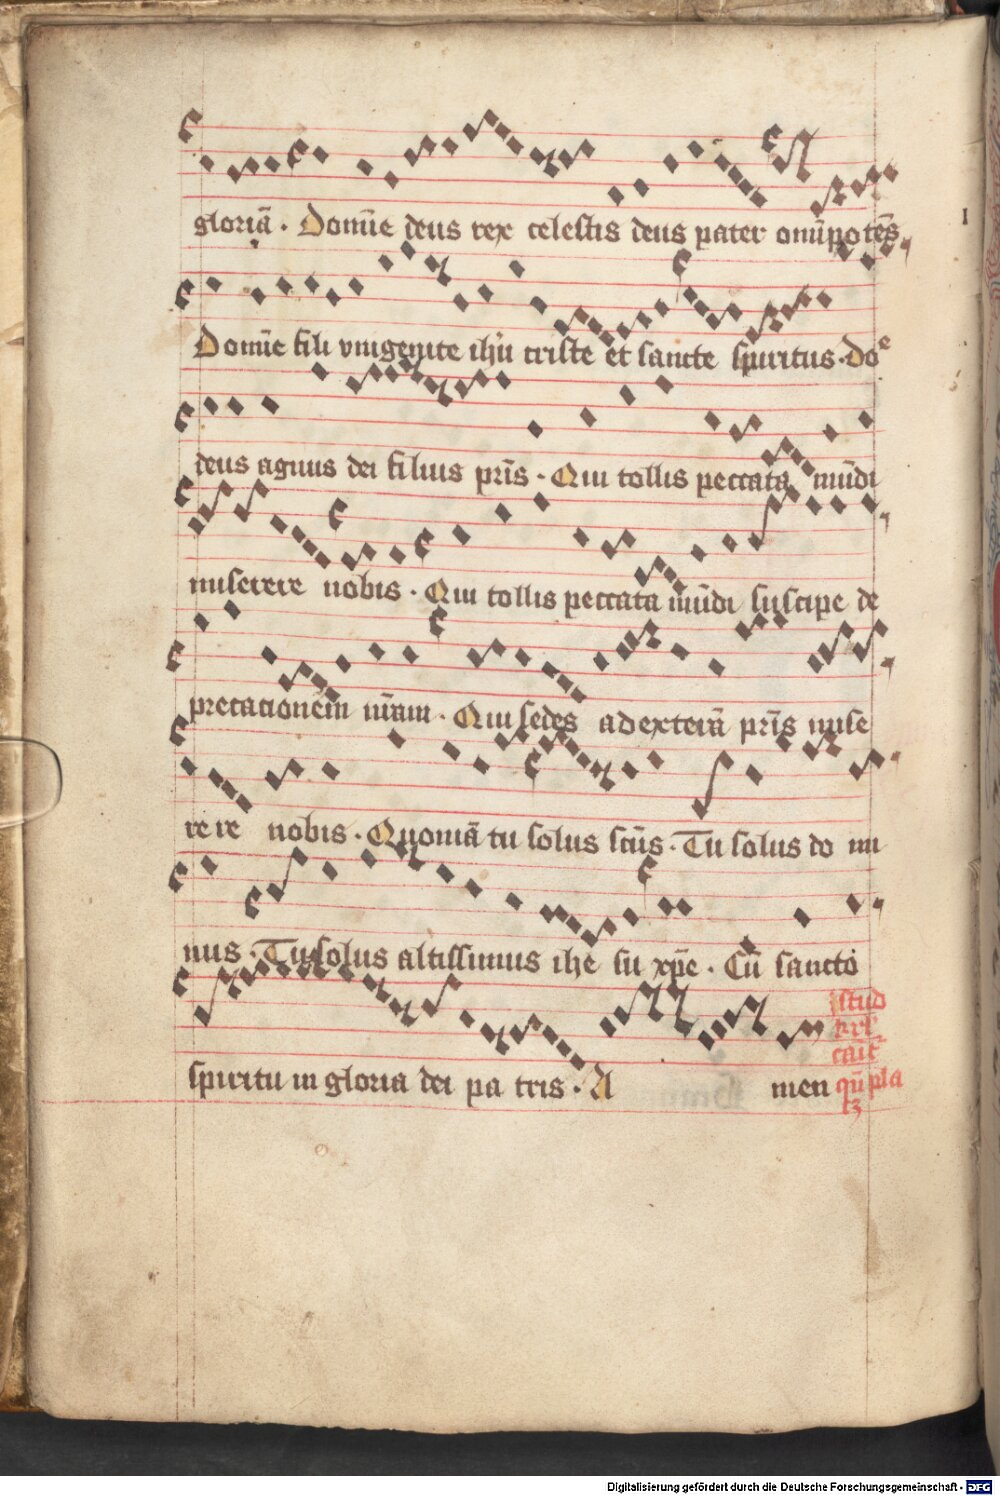 gloriā · Domīe deus rex celestis deus pater omīpotēs
I
Domīe fili vnigenite ihū criste et sancte spiritus · Doᵉ
deus agnus dei filius pr̄is · Qui tollis peccata mūdi
miserere nobis · Qui tollis peccata mūdi suscipe de
precationem nr̄am · Qui sedes ad exterā pr̄is mise
rere nobis · Quoniā tu solus sc̄us · Tu solus do mi
nus · Tu solus altissimus ihe su xp̄e · Cū sancto
spiritu in gloria dei pa tris · A men
istud
Digitalisierung gefördert durch die Deutsche Forschungsgemeinschaft - DFG